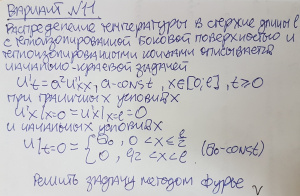 Вариант №11
Распределение температуры в стержне длины l
с теплоизолированной боковой поверхностью и
теплоизолированными концами описывается
начально-краевой задачей
U't = a²U''xx, a-const, x∈[0;l], t≥0
при граничных условиях
U'x|x=0 = U'x|x=l = 0
и начальных условиях
U|t=0 = { θ₀, 0<x≤ l/2
{ 0, l/2<x<l (θ₀-const)
Решить задачу методом Фурье